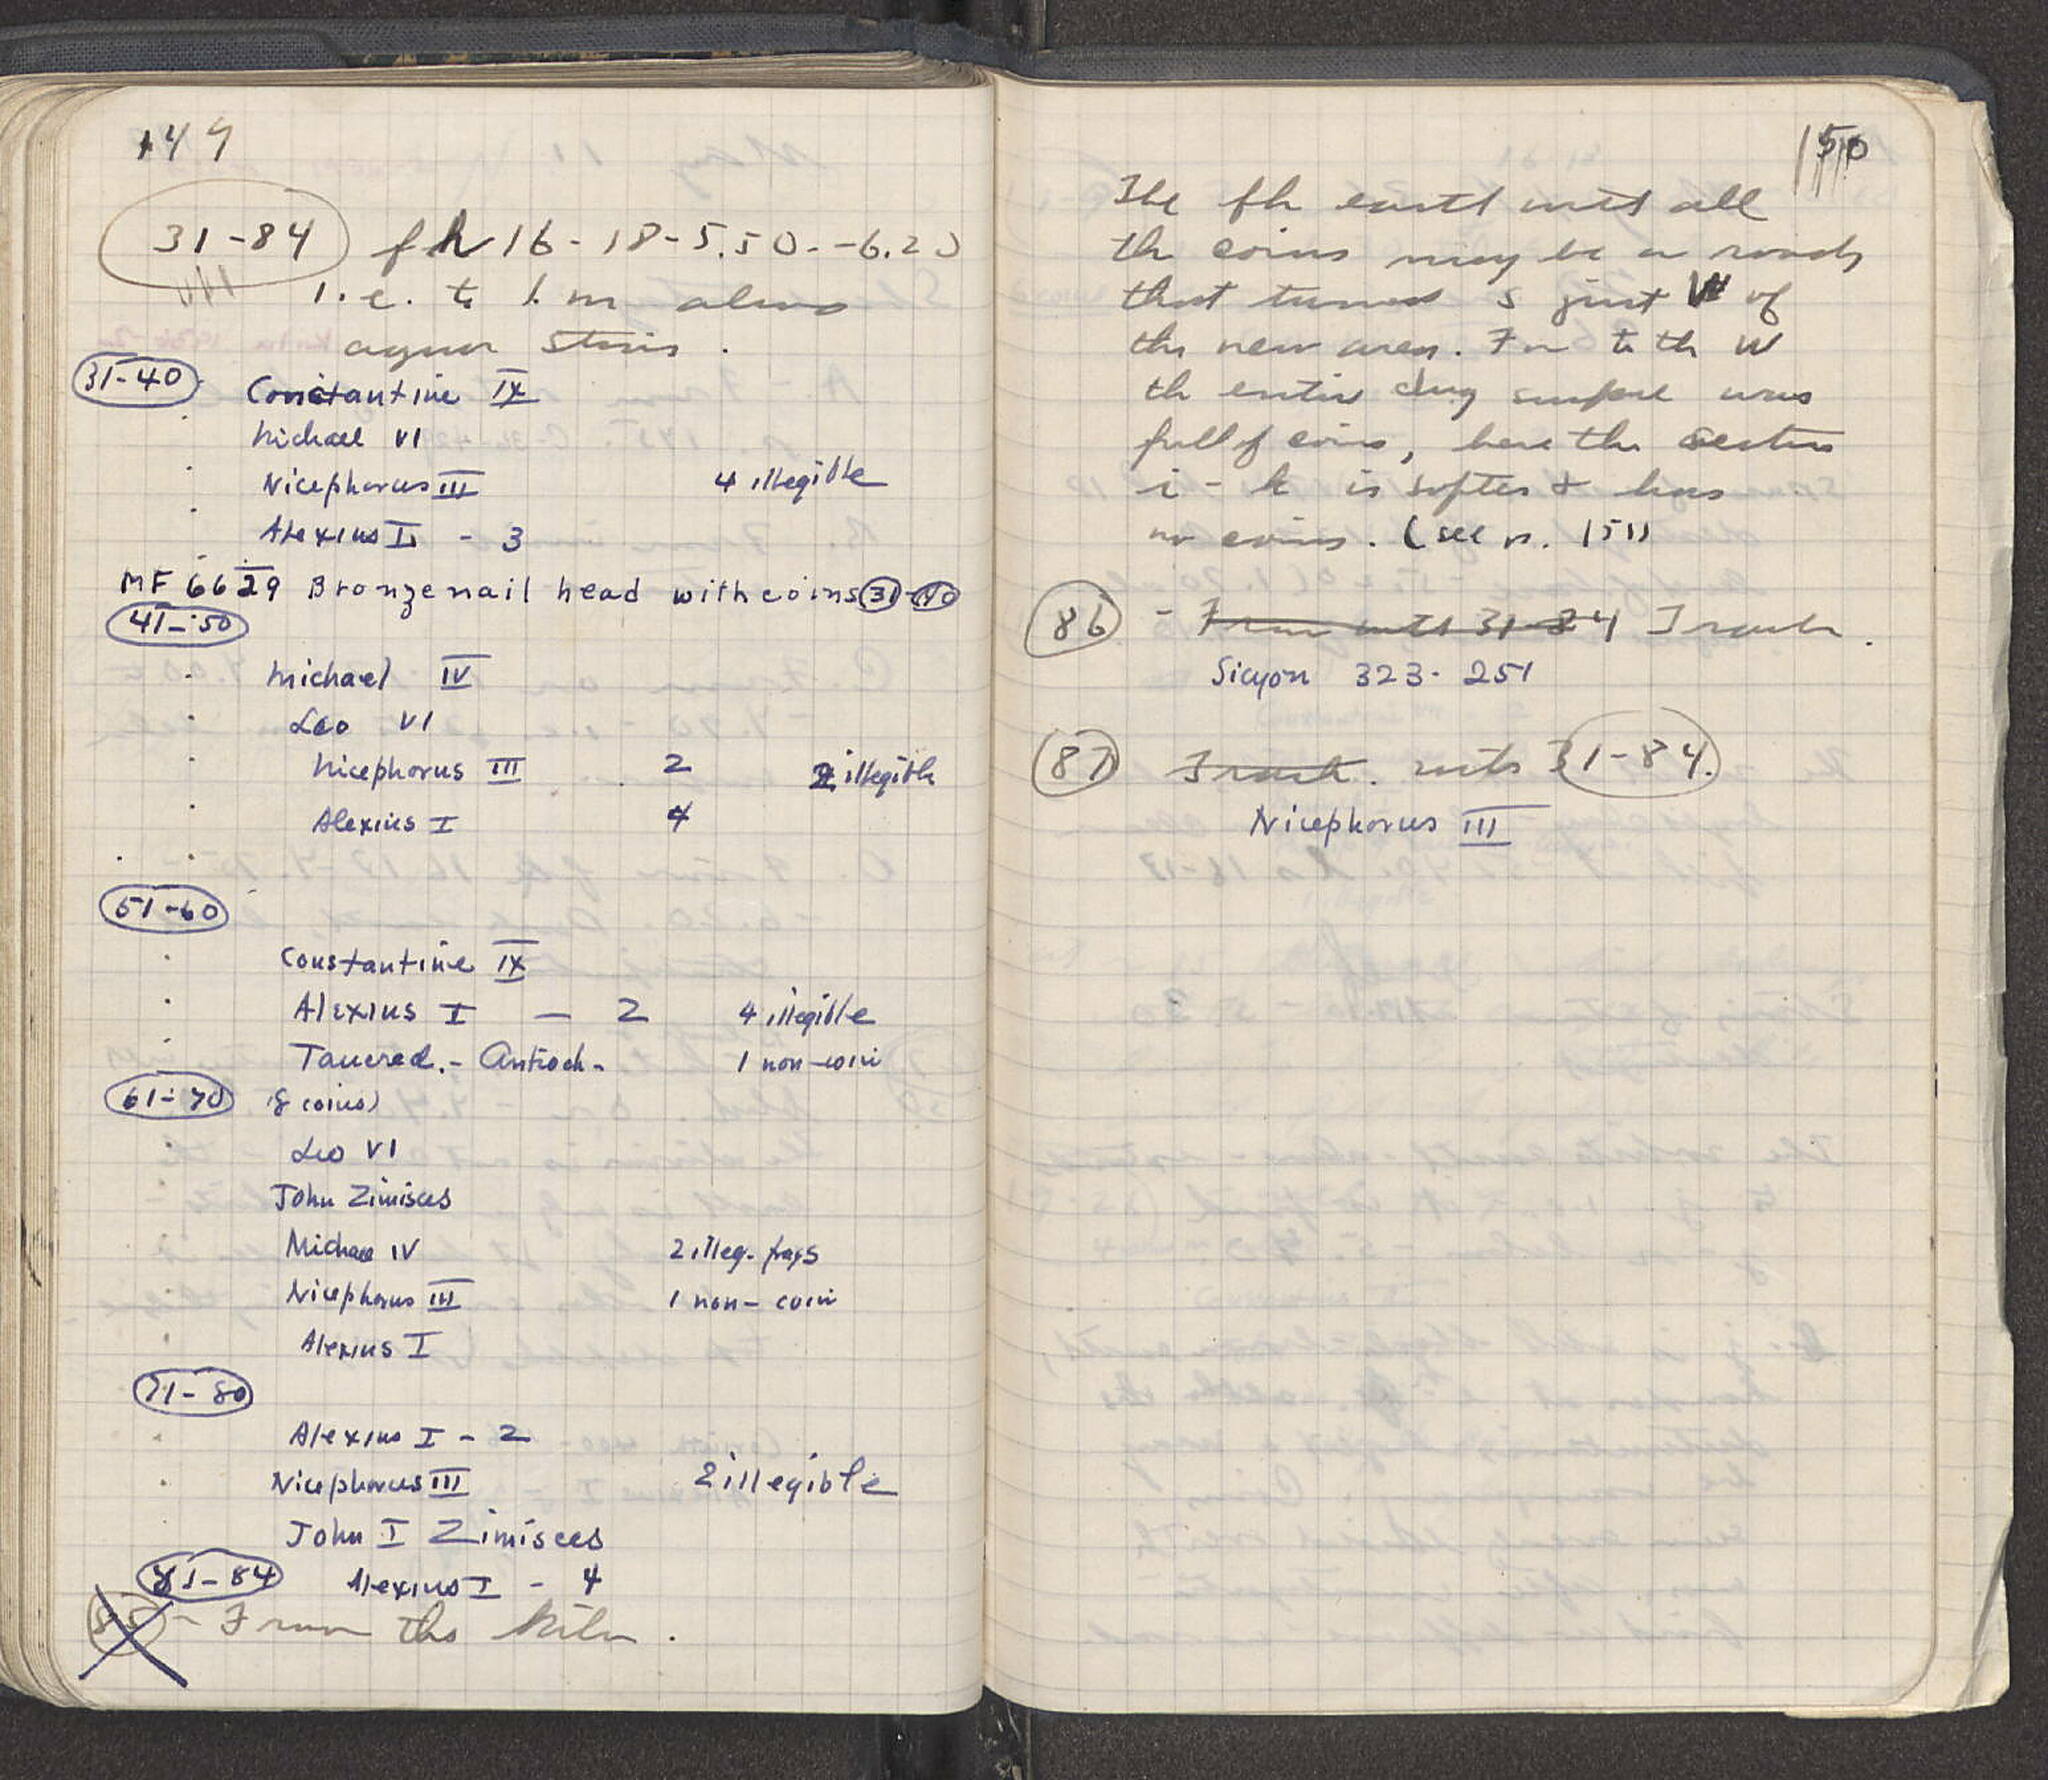 149
31-84 fh 16-18-5.50--6.20
i.e. to 1. m along
agora stoas.
31-40 Constantine IX
Michael VI
Nicephorus III 4 illegible
Alexius I - 3
MF 6629 Bronze nail head with coins 31-40
41-50
Michael IV
Leo VI
Nicephorus III 2 2 illegible
Alexius I 4
51-60
Constantine IX
Alexius I - 2 4 illegible
Tancred - Antioch - 1 non-coin
61-70 (8 coins)
Leo VI
John Zimisces
Michae IV 2 illeg. frags
Nicephorus III 1 non-coin
Alexius I
71-80
Alexius I - 2
Nicephorus III 2 illegible
John I Zimisces
81-84 Alexius I - 4
85 - From the kiln.
150
The fh earth with all
the coins may be a road
that turned S just W of
the new area. For to the W
the entire clay surface was
full of coins, here the section
i-k is softer & has
no coins. (see p. 151)
86 - From with 31-84 Trench.
Sicyon 323-251
87 Trench. with 31-84.
Nicephorus III